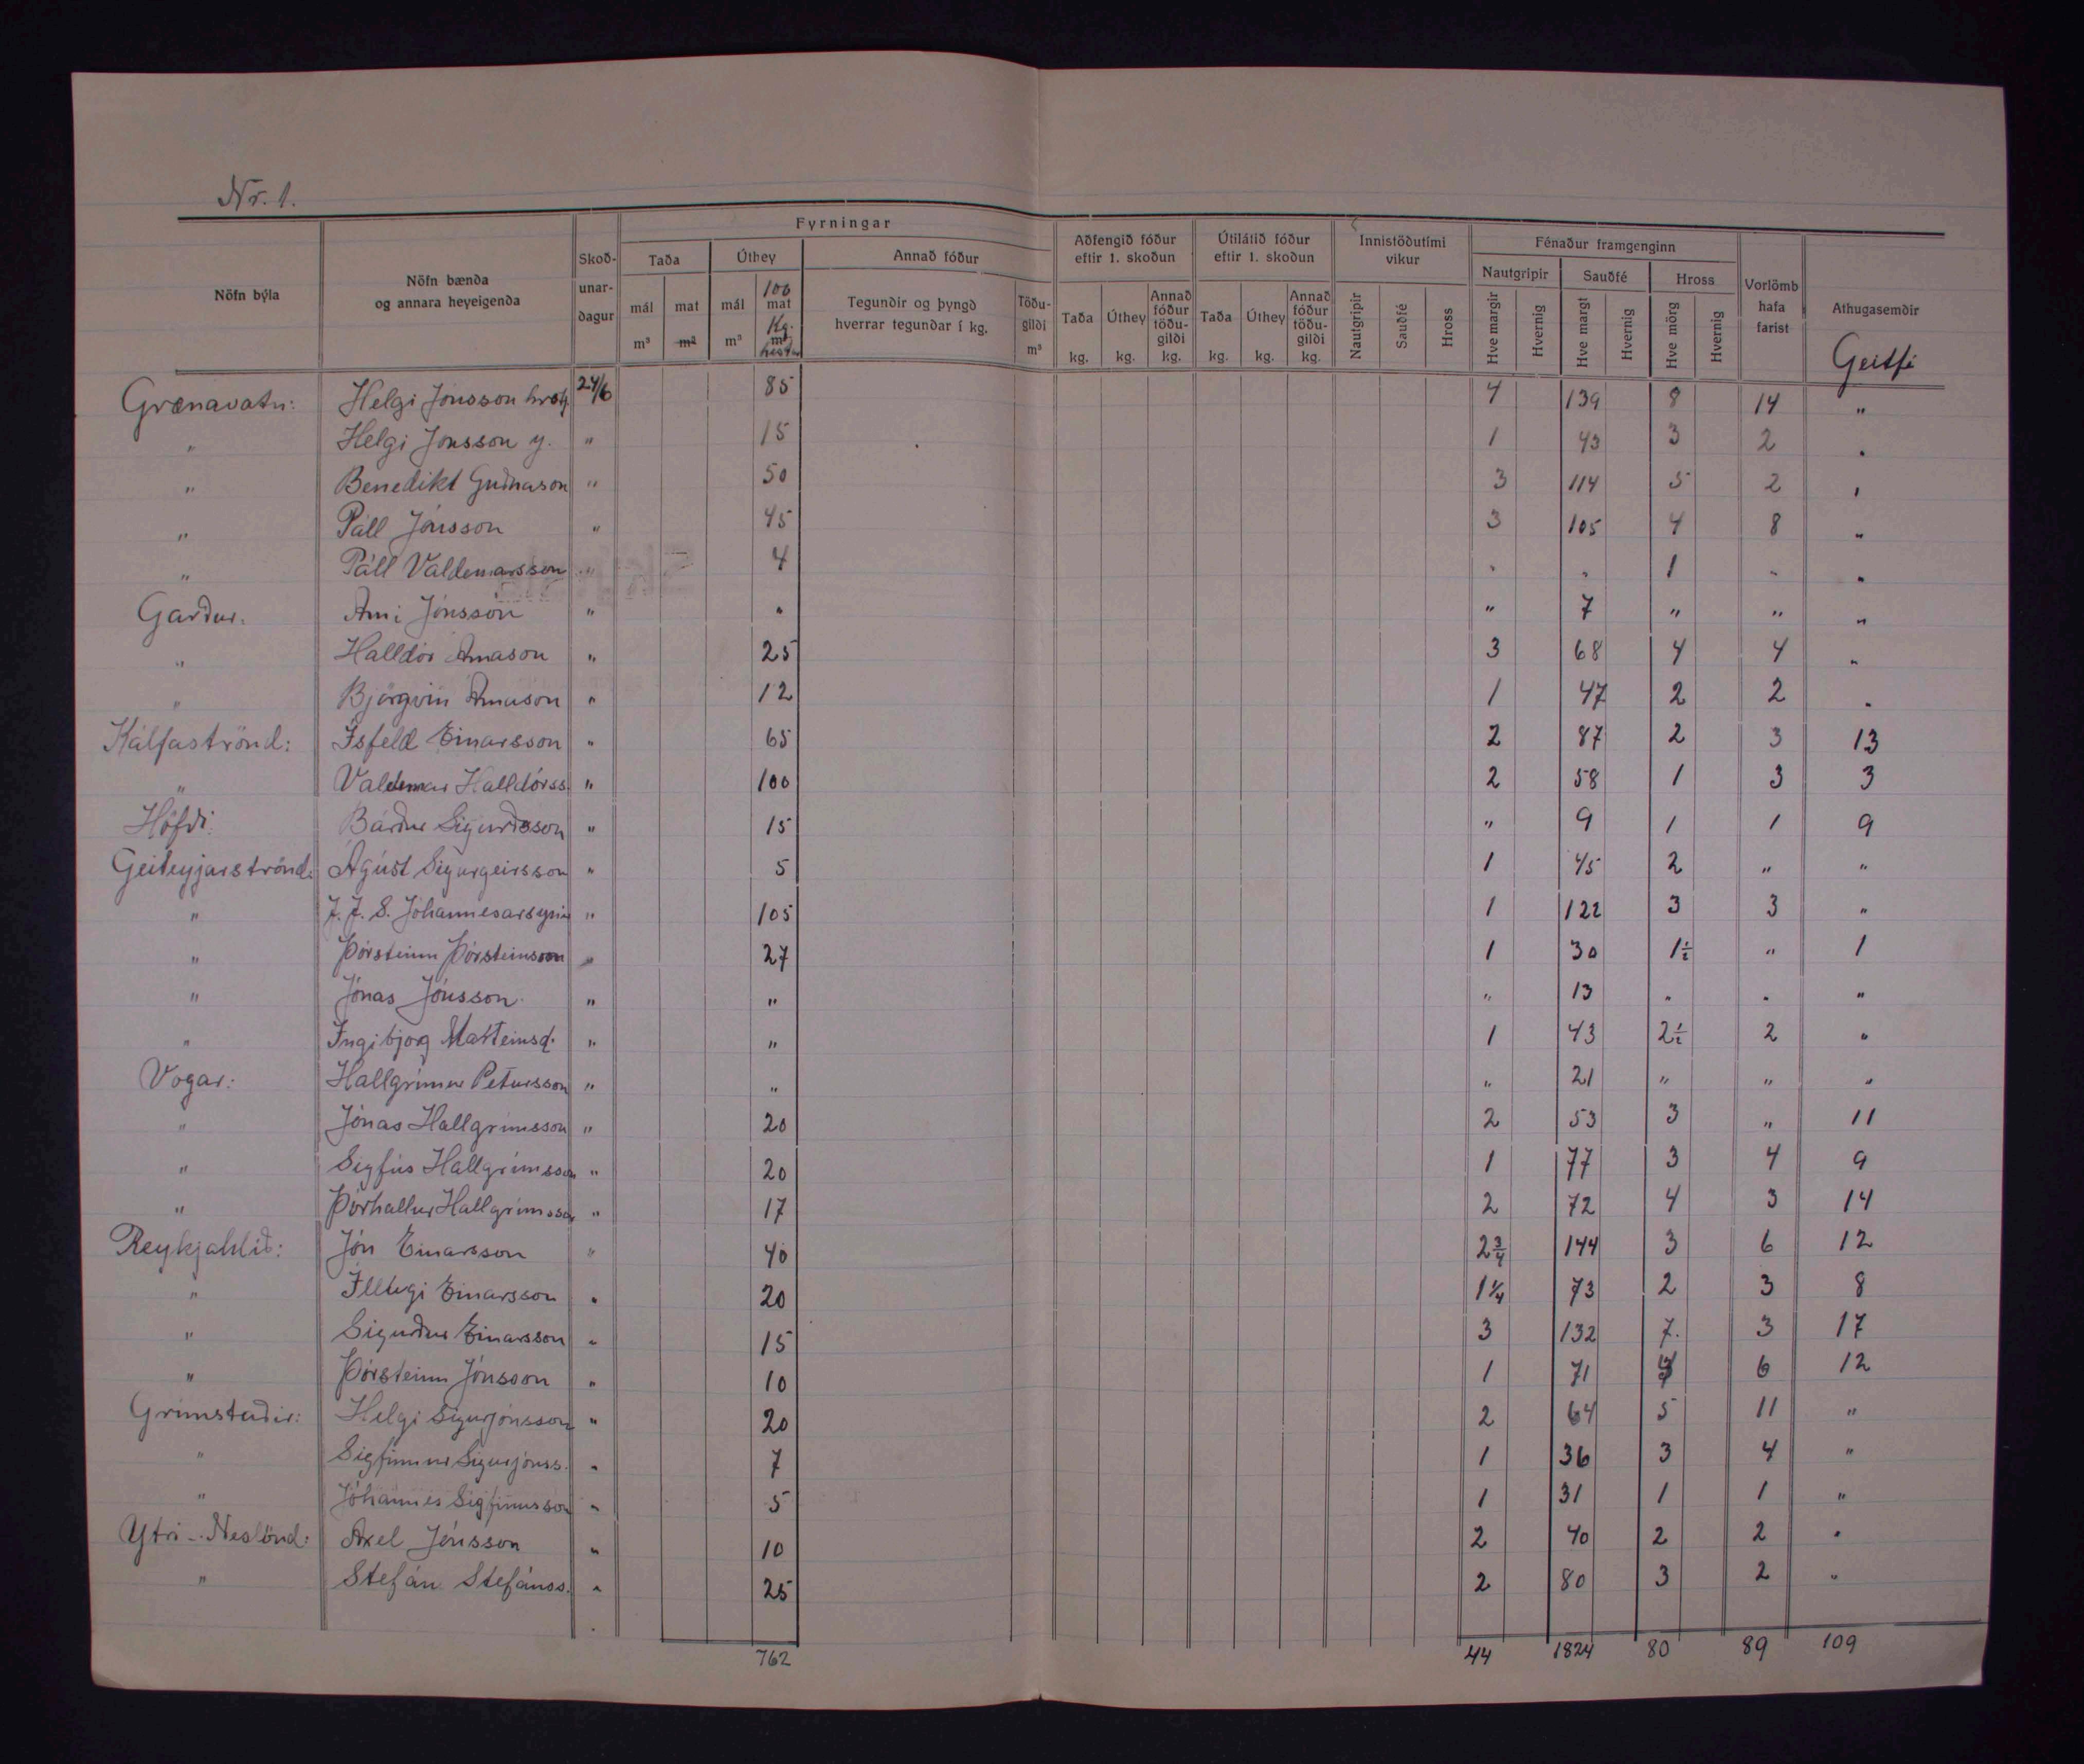 Nr. 1.
Nöfn býla | Nöfn bænda og annara heyeigenda | Skoð-unar-dagur | Fyrningar | Aðfengið fóður eftir 1. skoðun | Útilátið fóður eftir 1. skoðun | Innistöðutími vikur | Fénaður framgenginn | Vorlömb hafa farist | Athugasemdir
Taða | Úthey | Annað fóður | Nautgripir | Sauðfé | Hross
mál m³ | mat m³ | mál m³ | 100 mat Kg. m³ hestar | Tegundir og þyngd hverrar tegundar í kg. | Töðu-gildi m³ | Taða kg. | Úthey kg. | Annað fóður töðu-gildi kg. | Taða kg. | Úthey kg. | Annað fóður töðu-gildi kg. | Nautgripir | Sauðfé | Hross | Hve margir | Hvernig | Hve margt | Hvernig | Hve mörg | Hvernig | Geitfé
Grænavatn: | Helgi Jónsson hrstj. | 24/6 | 85 | 4 | 139 | 8 | 14 | "
" | Helgi Jónsson y. | " | 15 | 1 | 43 | 3 | 2 | "
" | Benedikt Guðnason | " | 50 | 3 | 114 | 5 | 2 | "
" | Páll Jónsson | " | 45 | 3 | 105 | 4 | 8 | "
" | Páll Valdemarsson | " | 4 | " | " | 1 | " | "
Garður. | Árni Jónsson | " | " | " | 7 | " | " | "
" | Halldór Árnason | " | 25 | 3 | 68 | 4 | 4 | "
" | Björgvin Árnason | " | 12 | 1 | 47 | 2 | 2 | "
Kálfaströnd: | Ísfeld Einarsson | " | 65 | 2 | 87 | 2 | 3 | 13
" | Valdemar Halldórss. | " | 100 | 2 | 58 | 1 | 3 | 3
Höfði: | Bárður Sigurðsson | " | 15 | " | 9 | 1 | 1 | 9
Geiteyjarströnd: | Ágúst Sigurgeirsson | " | 5 | 1 | 45 | 2 | " | "
" | J. J. S. Jóhannesarsynir | " | 105 | 1 | 122 | 3 | 3 | "
" | Þórsteinn Þórsteinsson | " | 27 | 1 | 30 | 1½ | " | 1
" | Jónas Jónsson | " | " | " | 13 | " | " | "
" | Ingibjörg Matteinsd. | " | " | 1 | 43 | 2½ | 2 | "
Vogar: | Hallgrímur Petursson | " | " | " | 21 | " | " | "
" | Jónas Hallgrímsson | " | 20 | 2 | 53 | 3 | " | 11
" | Sigfús Hallgrímsson | " | 20 | 1 | 77 | 3 | 4 | 9
" | Þórhallur Hallgrímsson | " | 17 | 2 | 72 | 4 | 3 | 14
Reykjahlíð: | Jón Einarsson | " | 40 | 2¾ | 144 | 3 | 6 | 12
" | Illugi Einarsson | " | 20 | 1¼ | 73 | 2 | 3 | 8
" | Sigurður Einarsson | " | 15 | 3 | 132 | 7. | 3 | 17
" | Þórsteinn Jónsson | " | 10 | 1 | 71 | 6 | 12
Grímstaðir: | Helgi Sigurjónsson | " | 20 | 2 | 64 | 5 | 11 | "
" | Sigfinnur Sigurjónss. | " | 7 | 1 | 36 | 3 | 4 | "
" | Jóhannes Sigfinnsson | " | 5 | 1 | 31 | 1 | 1 | "
Ytri-Neslönd: | Axel Jónsson | " | 10 | 2 | 40 | 2 | 2 | "
" | Stefán Stefánss. | " | 25 | 2 | 80 | 3 | 2 | "
762 | 44 | 1824 | 80 | 89 | 109